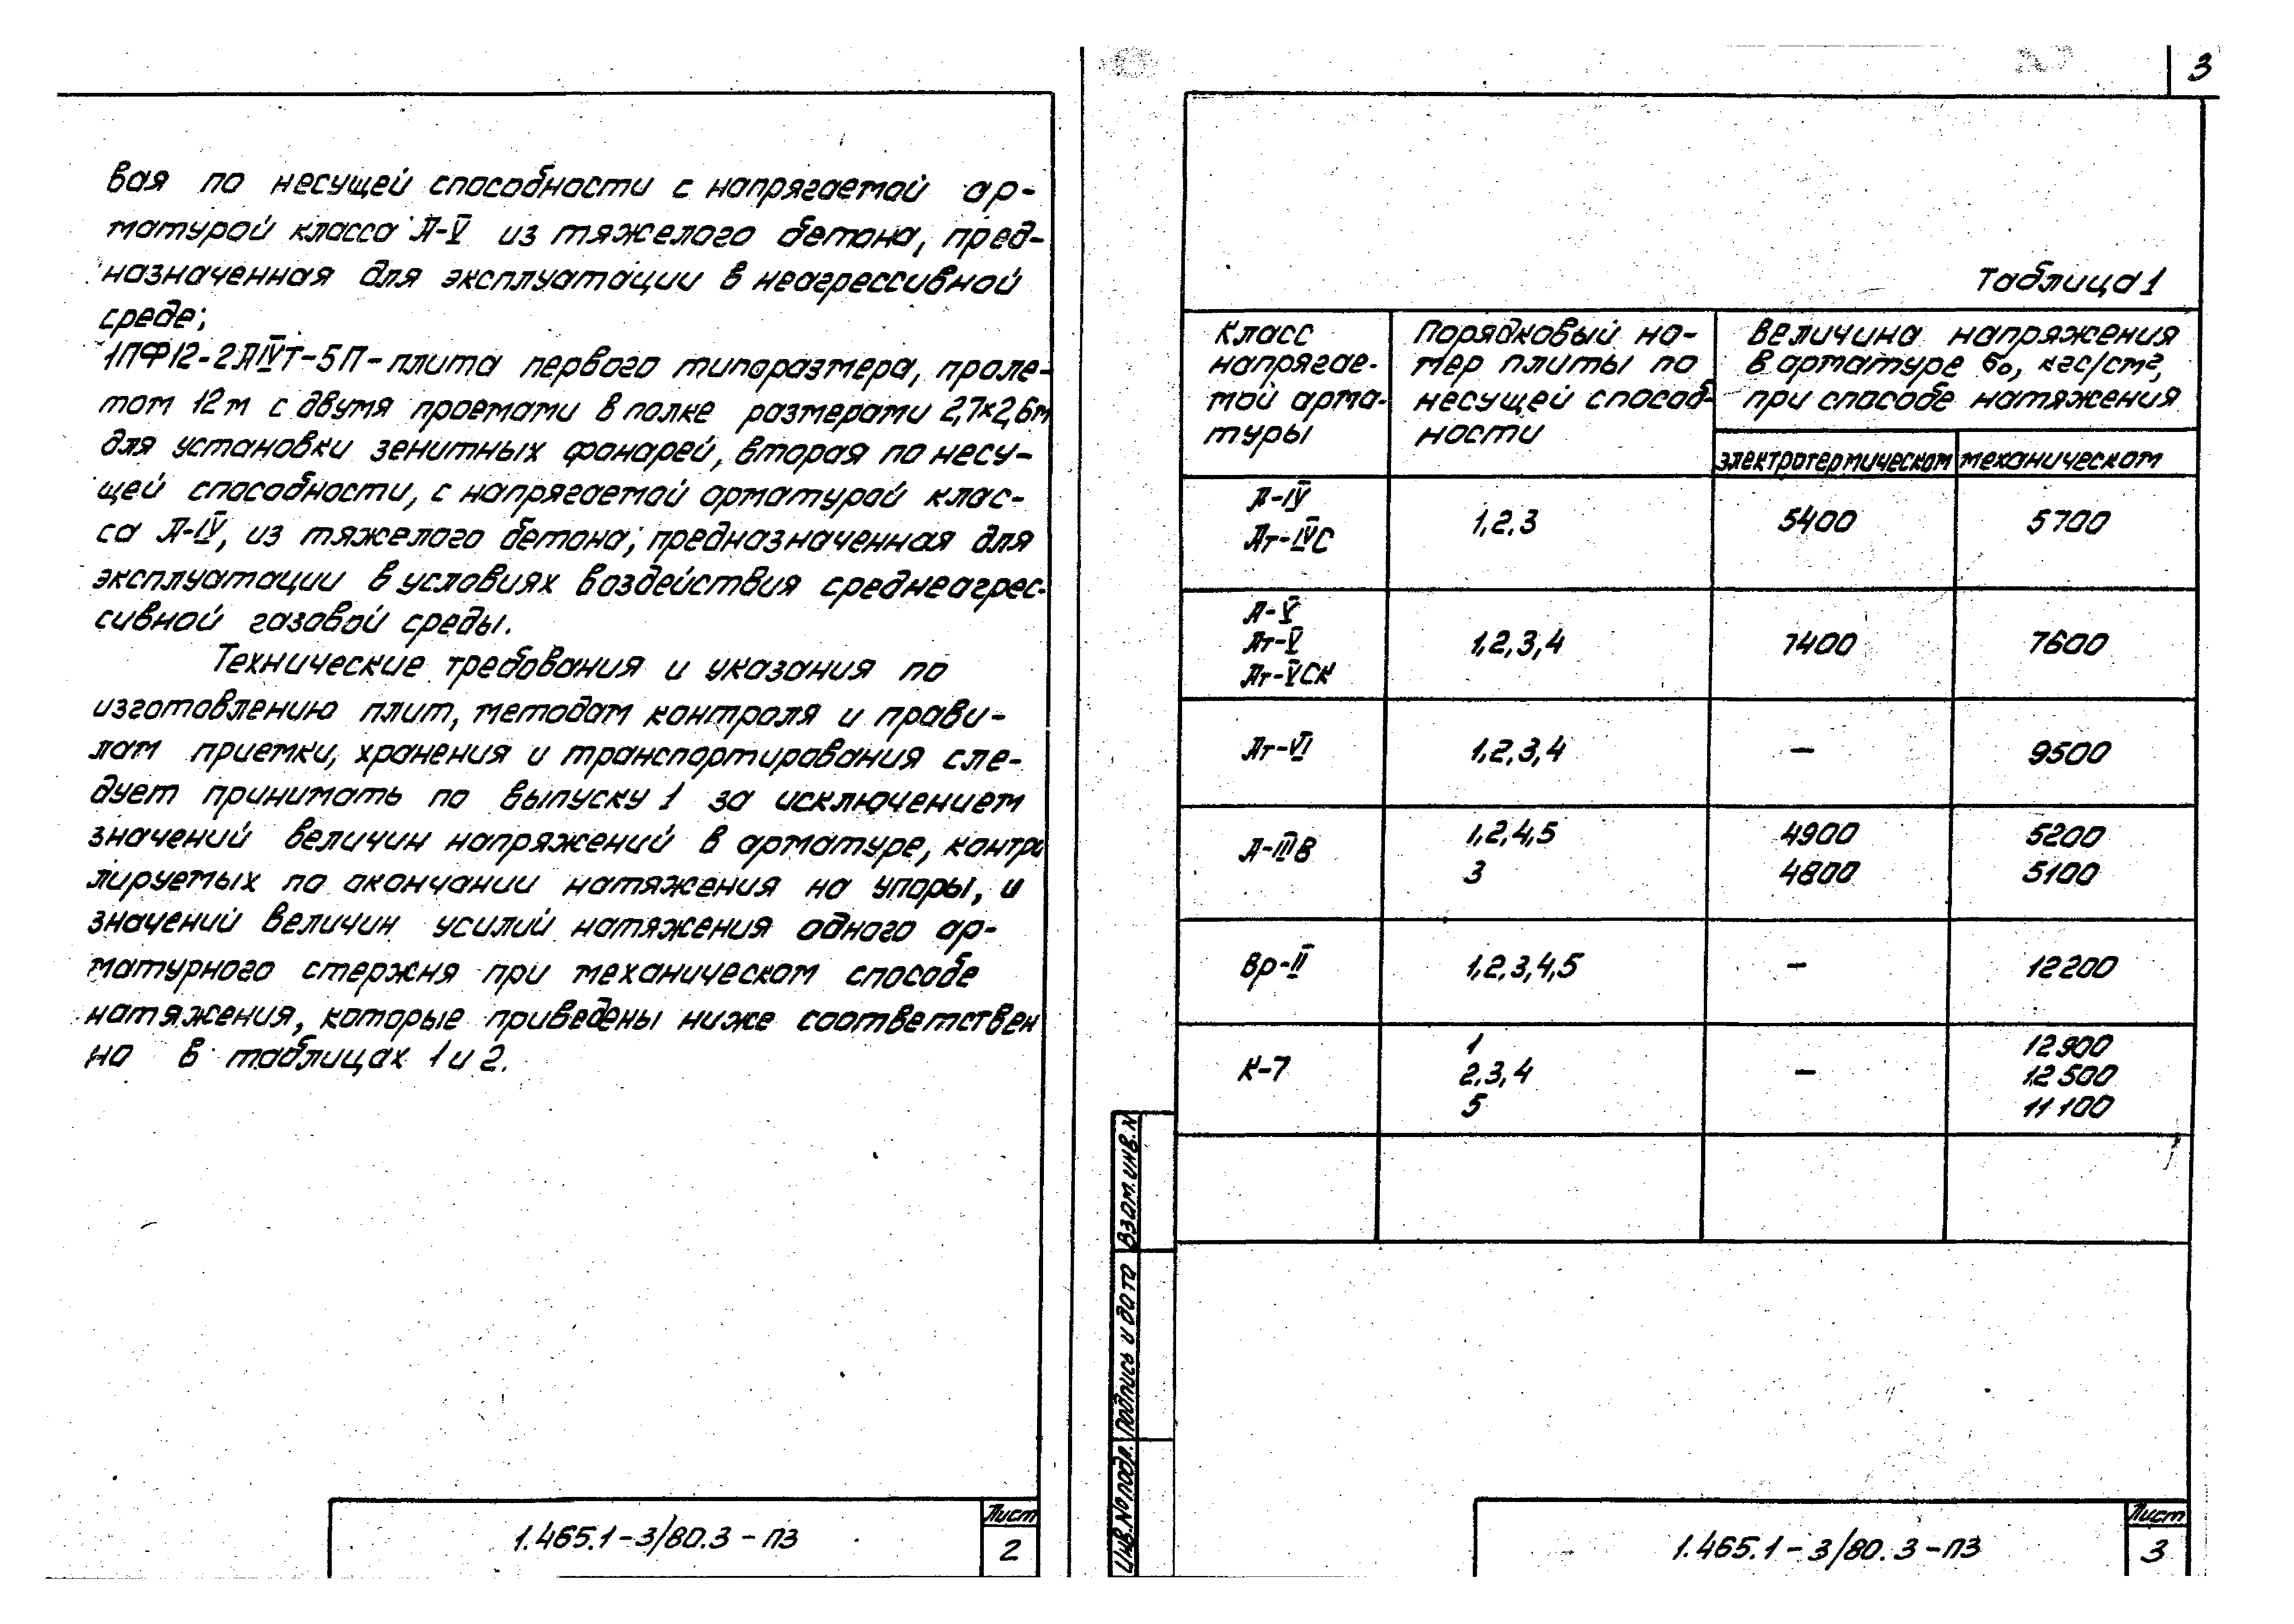 вая по несущей способности с напрягаемой ар-
матурой класса А-V из тяжелого бетона, пред-
назначенная для эксплуатации в неагрессивной
среде;
1ПФ12-2АIVТ-5П-плита первого типоразмера, проле-
том 12м с двумя проемами в полке размерами 2,7×2,6м
для установки зенитных фонарей, вторая по несу-
щей способности, с напрягаемой арматурой клас-
са А-IV, из тяжелого бетона, предназначенная для
эксплуатации в условиях воздействия среднеагрес-
сивной газовой среды.
Технические требования и указания по
изготовлению плит, методам контроля и прави-
лам приемки, хранения и транспортирования сле-
дует принимать по выпуску 1 за исключением
значений величин напряжений в арматуре, контро
лируемых по окончании натяжения на упоры, и
значений величин усилий натяжения одного ар-
матурного стержня при механическом способе
натяжения, которые приведены ниже соответствен
но в таблицах 1 и 2.
1.465.1-3/80.3-ПЗ
Лист
2
3
Таблица 1
Класс напрягае-мой арма-туры
Порядковый но-мер плиты по несущей способ-ности
Величина напряжения в арматуре σ₀, кгс/см², при способе натяжения
электротермическом механическом
А-IV
Ат-IVС 1,2,3 5400 5700
А-V
Ат-V 1,2,3,4 7400 7600
Ат-VСК
Ат-VI 1,2,3,4 – 9500
А-IIIВ 1,2,4,5 4900 5200
3 4800 5100
Вр-II 1,2,3,4,5 – 12200
К-7 1 – 12900
2,3,4 12500
5 11100
Взам.инв.N
Подпись и дата
Инв.№ подл.
1.465.1-3/80.3-ПЗ
Лист
3